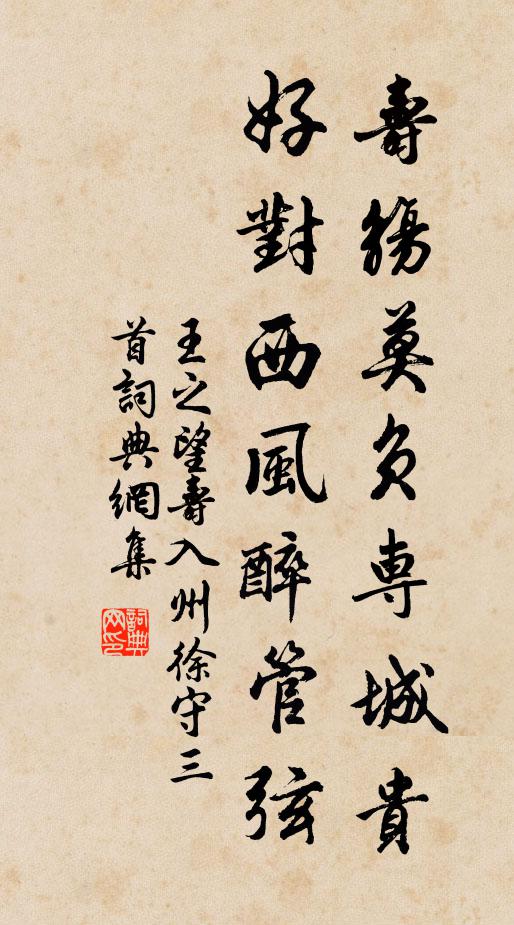 壽觴莫負專城貴
好對西風醉管弦
王之望壽入州徐守三
首詞典網集
詞典网印